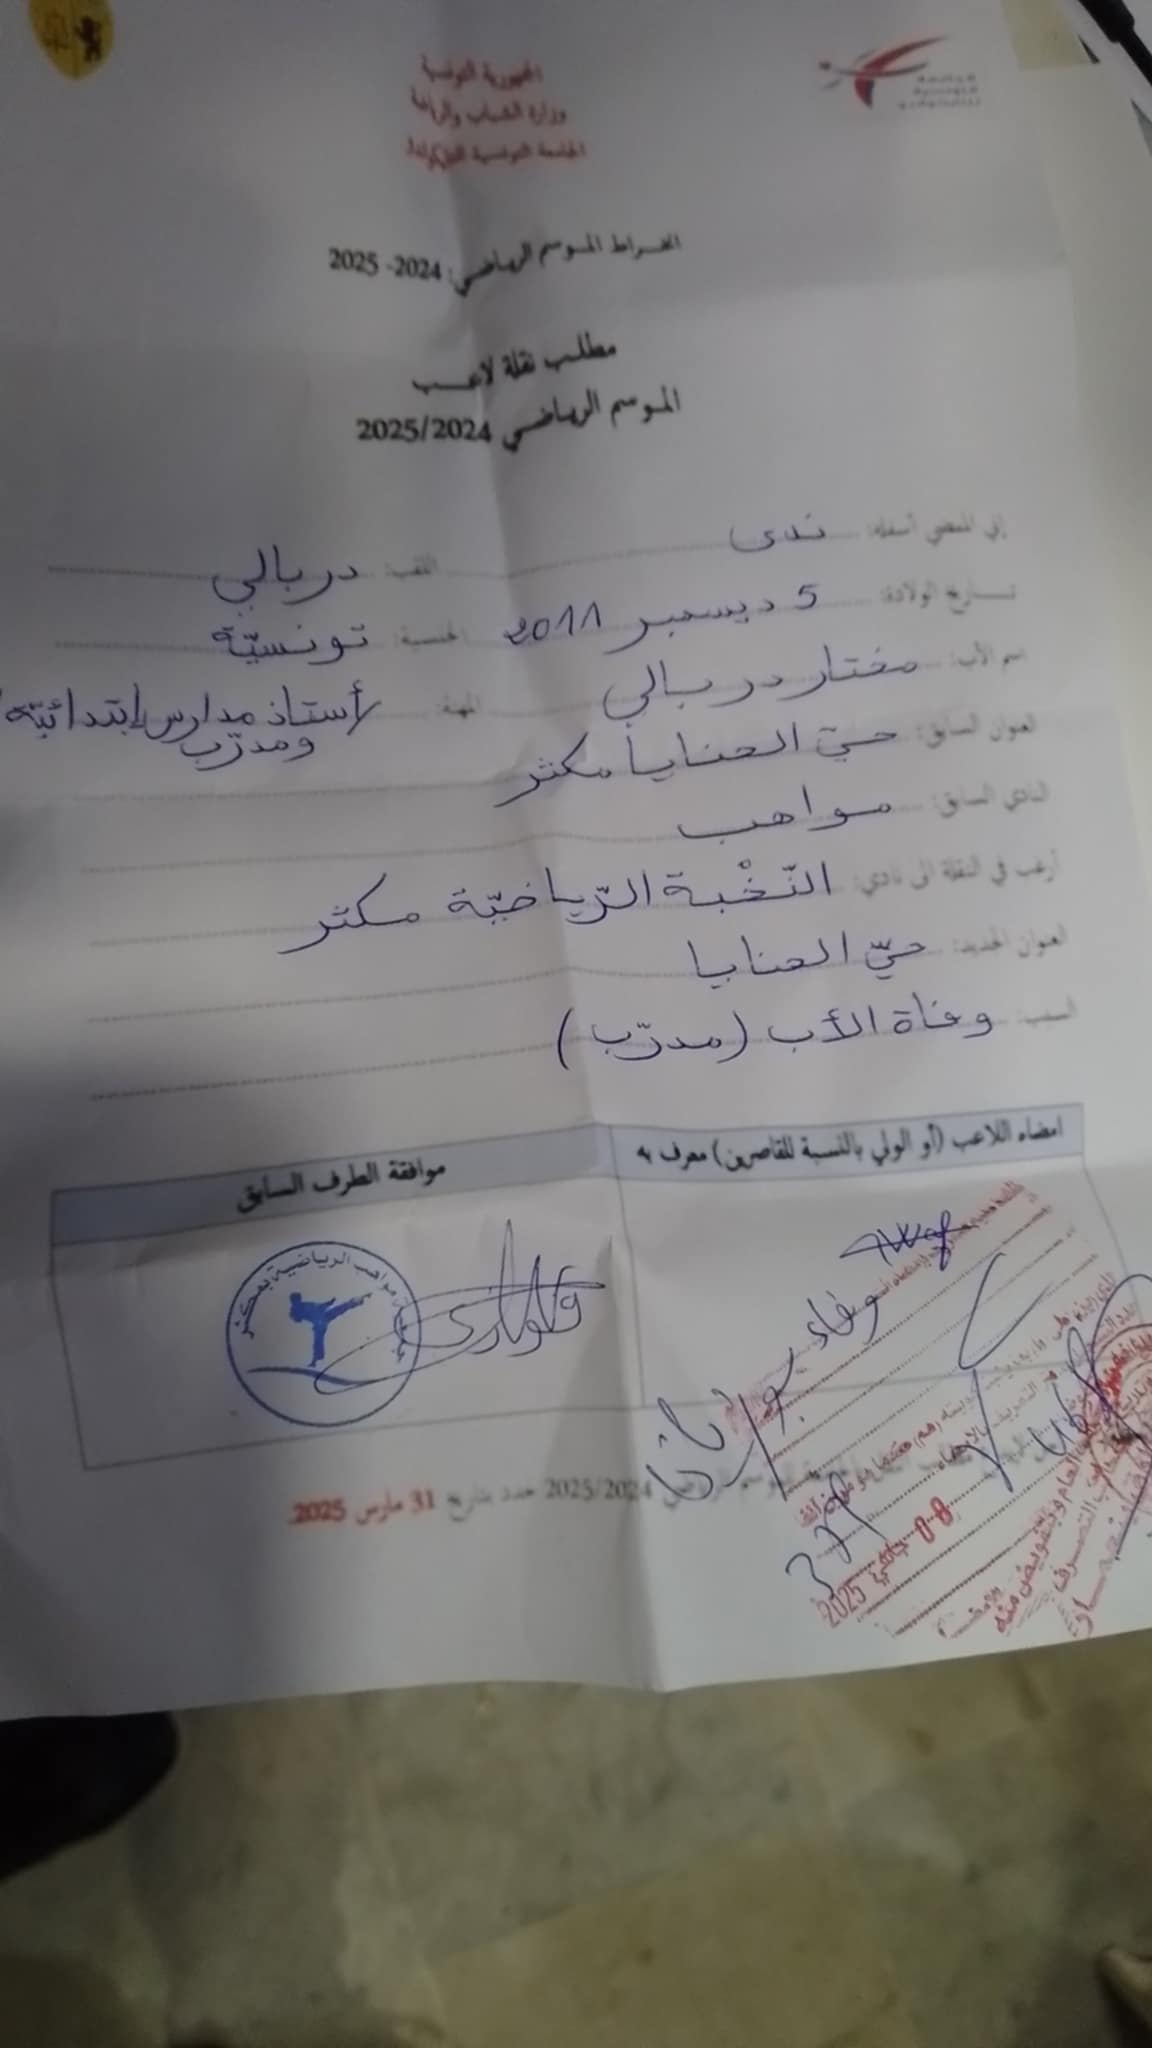 الجمهورية التونسية
وزارة الشباب والرياضة
الجامعة التونسية للتايكواندو
انخراط الموسم الرياضي: 2024- 2025
مطلب نقلة لاعب
الموسم الرياضي 2025/2024
إني الممضي أسفله: ندى اللقب: دربالي
تاريخ الولادة: 5 ديسمبر 2011 الجنسية: تونسيّة
اسم الأب: مختار دربالي المهنة: أستاذ مدارس إبتدائيّة
ومدرّب
العنوان السابق: حيّ الحنايا مكثر
النادي السابق: مواهب
أرغب في النقلة الى نادي: النّخْبة الرّياضيّة مكثر
العنوان الجديد: حيّ الحنايا
السبب: وفاة الأب (مدرّب)
امضاء اللاعب (أو الولي بالنسبة للقاصرين) معرف به
موافقة الطرف السابق
مواهب الرياضية بمكثر
وفاء
08 جانفي 2025
2025/2024 حدد بتاريخ 31 مارس 2025